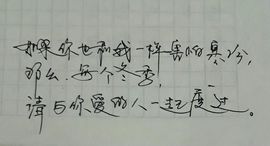 如果你也和我一样害怕寒冷,
那么,每个冬季,
请与你爱的人一起度过。